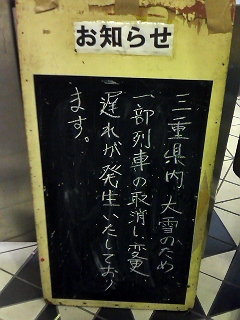 お知らせ
三重県内 大雪のため
一部列車の取消し、変更、
遅れが発生いたしており
ます。